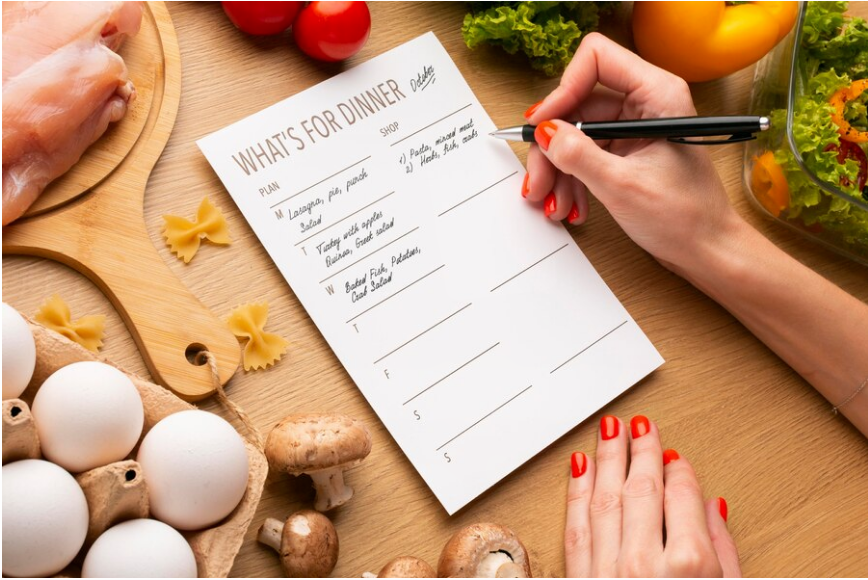 WHAT'S FOR DINNER
October
PLAN
M Lasagna, pie, punch
Salad
T Turkey with apples
Quinoa, Greet salad
W Baked Fish, Potatoes,
Crab Salad
T
F
S
S
SHOP
1) Pasta, minced meat
2) Herbs, fish, crabs